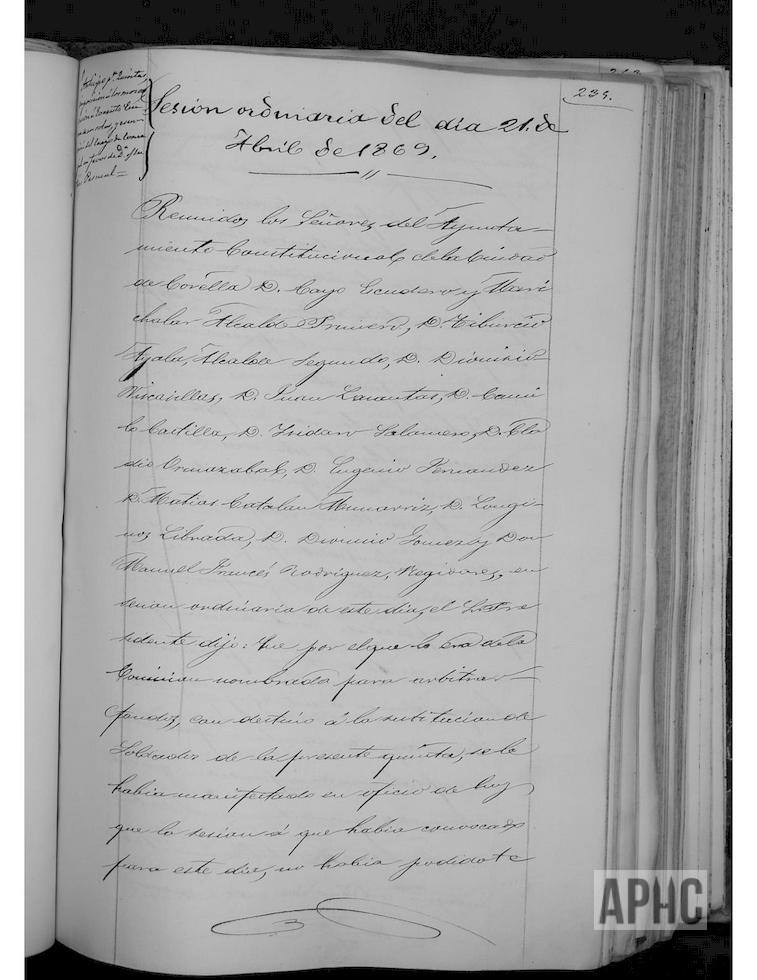 239.
Sesion ordinaria del dia 21. de
Abril de 1869.
Reunidos los Señores del Ayunta-
miento Constitucional de la Ciudad
de Corella D. Cayo Escudero y Mari
chalar Alcalde Primero, D. Tiburcio
Ayala, Alcalde Segundo, D. Dionisio
Virasillas, D. Juan D. Cami
lo Castilla, D. Isidoro Salamero, D. Cla
dio Ormazabal, D. Eugenio Fernandez
D. Matias Catalan Munarriz, D. Longi-
nos Librada, D. Dionisio Gomez y Don
Manuel Francés Rodriguez, Regidores, en
sesion ordinaria de este dia, el Sor Pre
sidente dijo: Que por el que lo era de la
Comision nombrada para arbitrar
fondos, con destino á la sustitucion de
Soldados de la presente quinta, se le
habia manifestado en oficio de hoy
que la sesion á que habia convocado
para este dia, no habia podido te
APHC